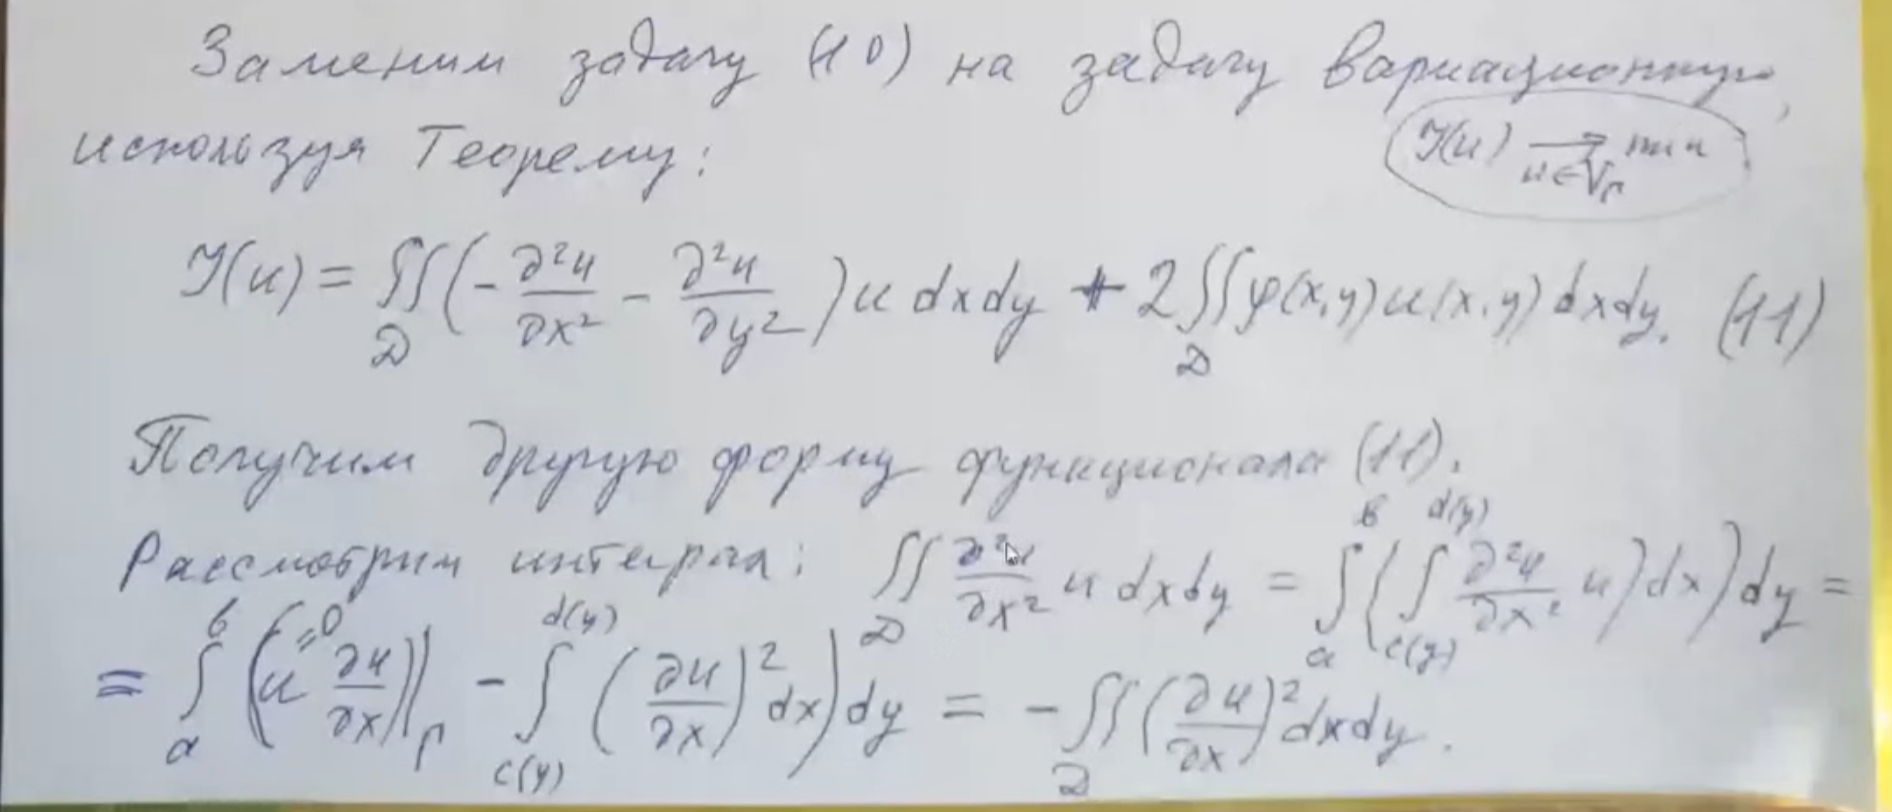 Заменим задачу (10) на задачу вариационную,
используя Теорему: J(u) →_{u∈V_Γ} min
J(u) = ∬_D (-∂²u/∂x² - ∂²u/∂y²) u dxdy + 2∬_D φ(x,y) u(x,y) dxdy. (11)
Получим другую форму функционала (11).
Рассмотрим интеграл: ∬_D ∂²u/∂x² u dxdy = ∫_a^b (∫_{c(y)}^{d(y)} ∂²u/∂x² u) dx) dy =
= ∫_a^b (u^{=0} ∂u/∂x)|_Γ - ∫_{c(y)}^{d(y)} (∂u/∂x)² dx) dy = -∬_D (∂u/∂x)² dxdy.